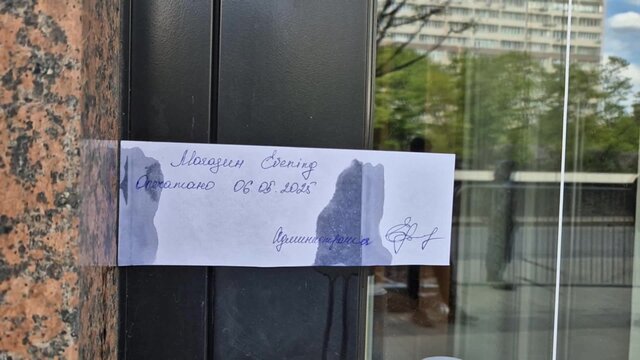 Магазин Evening
Опечатано 06.05.2025
Администрация